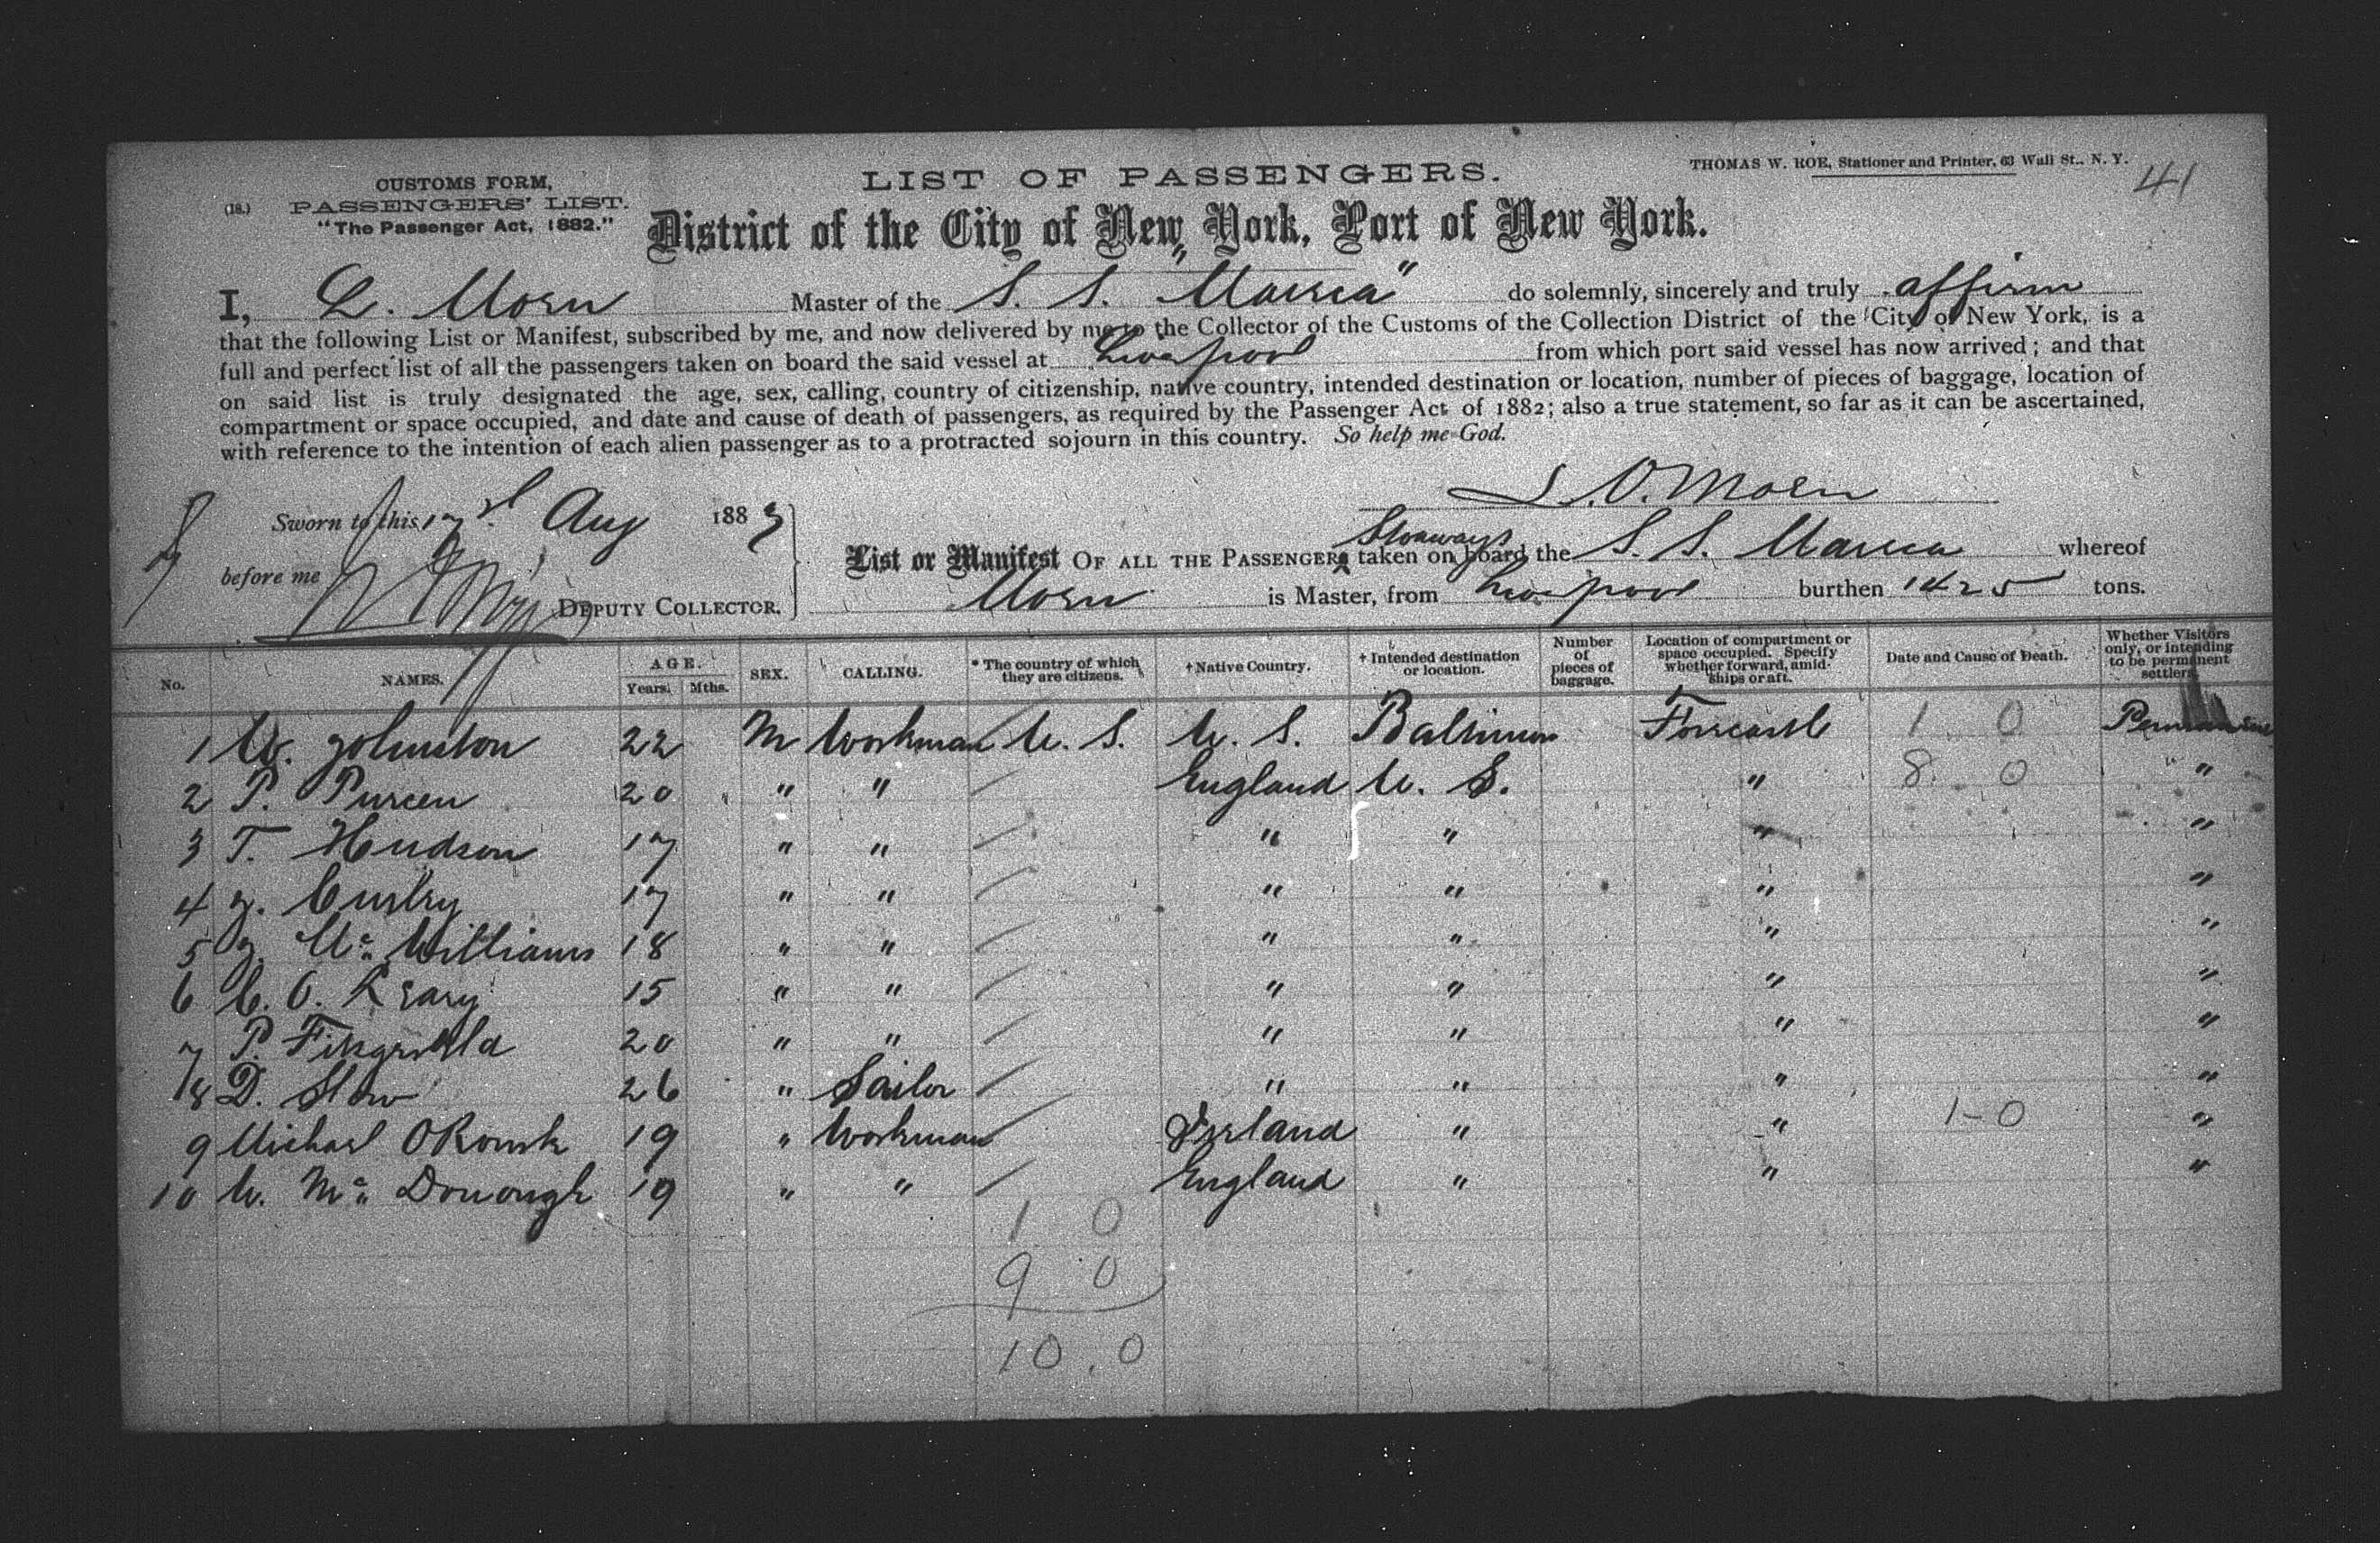 THOMAS W. ROE, Stationer and Printer, 63 Wall St., N. Y.
41
CUSTOMS FORM,
(18.) PASSENGERS' LIST.
"The Passenger Act, 1882."
LIST OF PASSENGERS.
District of the City of New York, Port of New York.
I, L. Morn Master of the S. S. "Marca" do solemnly, sincerely and truly affirm
that the following List or Manifest, subscribed by me, and now delivered by me to the Collector of the Customs of the Collection District of the City of New York, is a
full and perfect list of all the passengers taken on board the said vessel at Liverpool from which port said vessel has now arrived; and that
on said list is truly designated the age, sex, calling, country of citizenship, native country, intended destination or location, number of pieces of baggage, location of
compartment or space occupied, and date and cause of death of passengers, as required by the Passenger Act of 1882; also a true statement, so far as it can be ascertained,
with reference to the intention of each alien passenger as to a protracted sojourn in this country. So help me God.
Sworn to this Aug 1883
before me
DEPUTY COLLECTOR.
Stowaways
List or Manifest OF ALL THE PASSENGERS taken on board the S. S. whereof
is Master, from Liverpool burthen 1425 tons.
No. NAMES. AGE. Years. Mths. SEX. CALLING. * The country of which they are citizens. † Native Country. † Intended destination or location. Number of pieces of baggage. Location of compartment or space occupied. Specify whether forward, amidships or aft. Date and Cause of Death. Whether Visitors only, or intending to be permanent settlers.
1 W. Johnston 22 M Workman U. S. U. S. Baltimore Forecastle 1 0
2 P. Purcen 20 " " England U. S. " 8 0 "
3 T. Hudson 17 " " " " " "
4 J. Curley 17 " " " " " "
5 J. Mc Williams 18 " " " " " "
6 C. O. Leary 15 " " " " " "
7 P. Fitzgerald 20 " " " " " "
8 D. Slow 26 " Sailor " " " "
9 Michael O'Rourk 19 " Workman Ireland " " 1-0 "
10 W. Mc Donough 19 " " England " " "
1 0
9 0
10.0